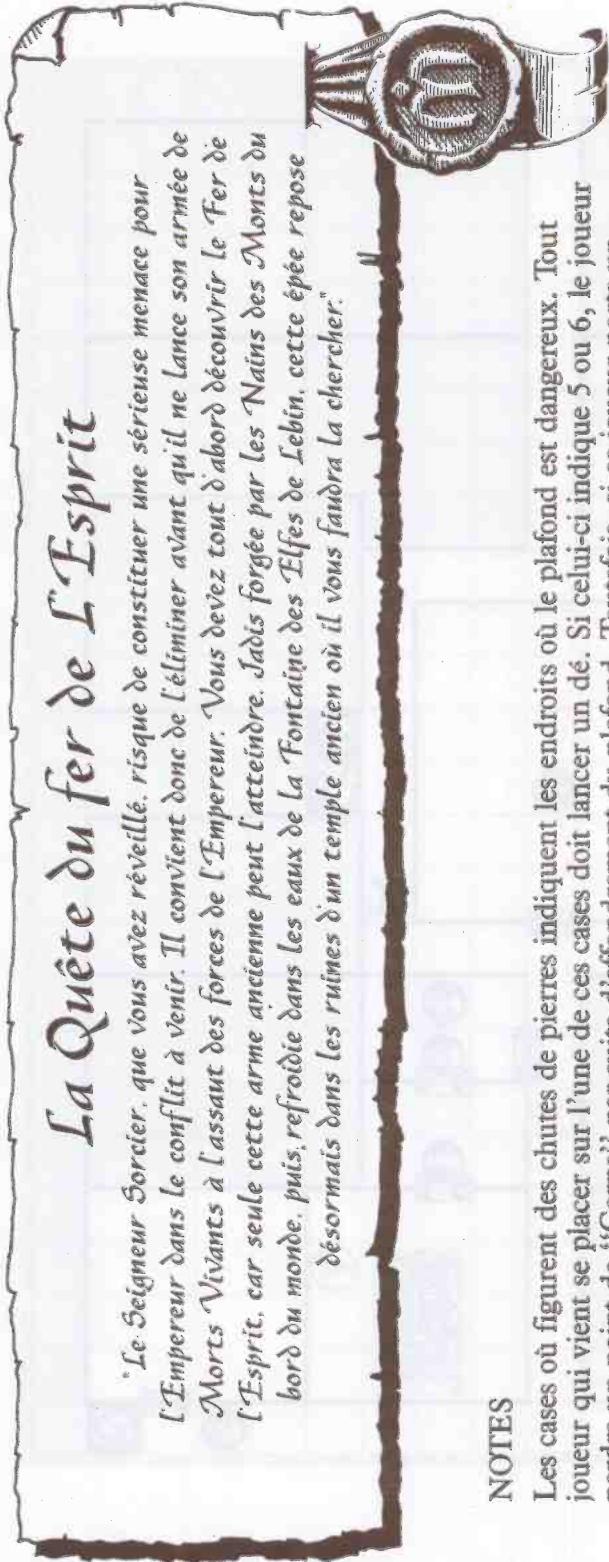 La Quête du fer de L'Esprit
"Le Seigneur Sorcier, que vous avez réveillé, risque de constituer une sérieuse menace pour
l'Empereur dans le conflit à venir. Il convient donc de l'éliminer avant qu'il ne lance son armée de
Morts Vivants à l'assaut des forces de l'Empereur. Vous devez tout d'abord découvrir le Fer de
l'Esprit, car seule cette arme ancienne peut l'atteindre. Jadis forgée par les Nains des Monts du
bord du monde, puis, refroidie dans les eaux de la Fontaine des Elfes de Lebin, cette épée repose
désormais dans les ruines d'un temple ancien où il vous faudra la chercher."
NOTES
Les cases où figurent des chutes de pierres indiquent les endroits où le plafond est dangereux. Tout
joueur qui vient se placer sur l'une de ces cases doit lancer un dé. Si celui-ci indique 5 ou 6, le joueur